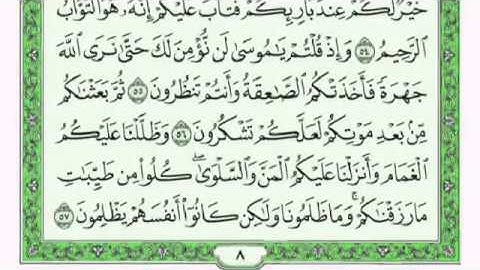 خَيْرٌ لَّكُمْ عِندَ بَارِئِكُمْ فَتَابَ عَلَيْكُمْ إِنَّهُۥ هُوَ ٱلتَّوَّابُ
ٱلرَّحِيمُ ٥٤ وَإِذْ قُلْتُمْ يَٰمُوسَىٰ لَن نُّؤْمِنَ لَكَ حَتَّىٰ نَرَى ٱللَّهَ
جَهْرَةً فَأَخَذَتْكُمُ ٱلصَّٰعِقَةُ وَأَنتُمْ تَنظُرُونَ ٥٥ ثُمَّ بَعَثْنَٰكُم
مِّنۢ بَعْدِ مَوْتِكُمْ لَعَلَّكُمْ تَشْكُرُونَ ٥٦ وَظَلَّلْنَا عَلَيْكُمُ
ٱلْغَمَامَ وَأَنزَلْنَا عَلَيْكُمُ ٱلْمَنَّ وَٱلسَّلْوَىٰ ۖ كُلُوا۟ مِن طَيِّبَٰتِ
مَا رَزَقْنَٰكُمْ ۖ وَمَا ظَلَمُونَا وَلَٰكِن كَانُوٓا۟ أَنفُسَهُمْ يَظْلِمُونَ ٥٧
٨